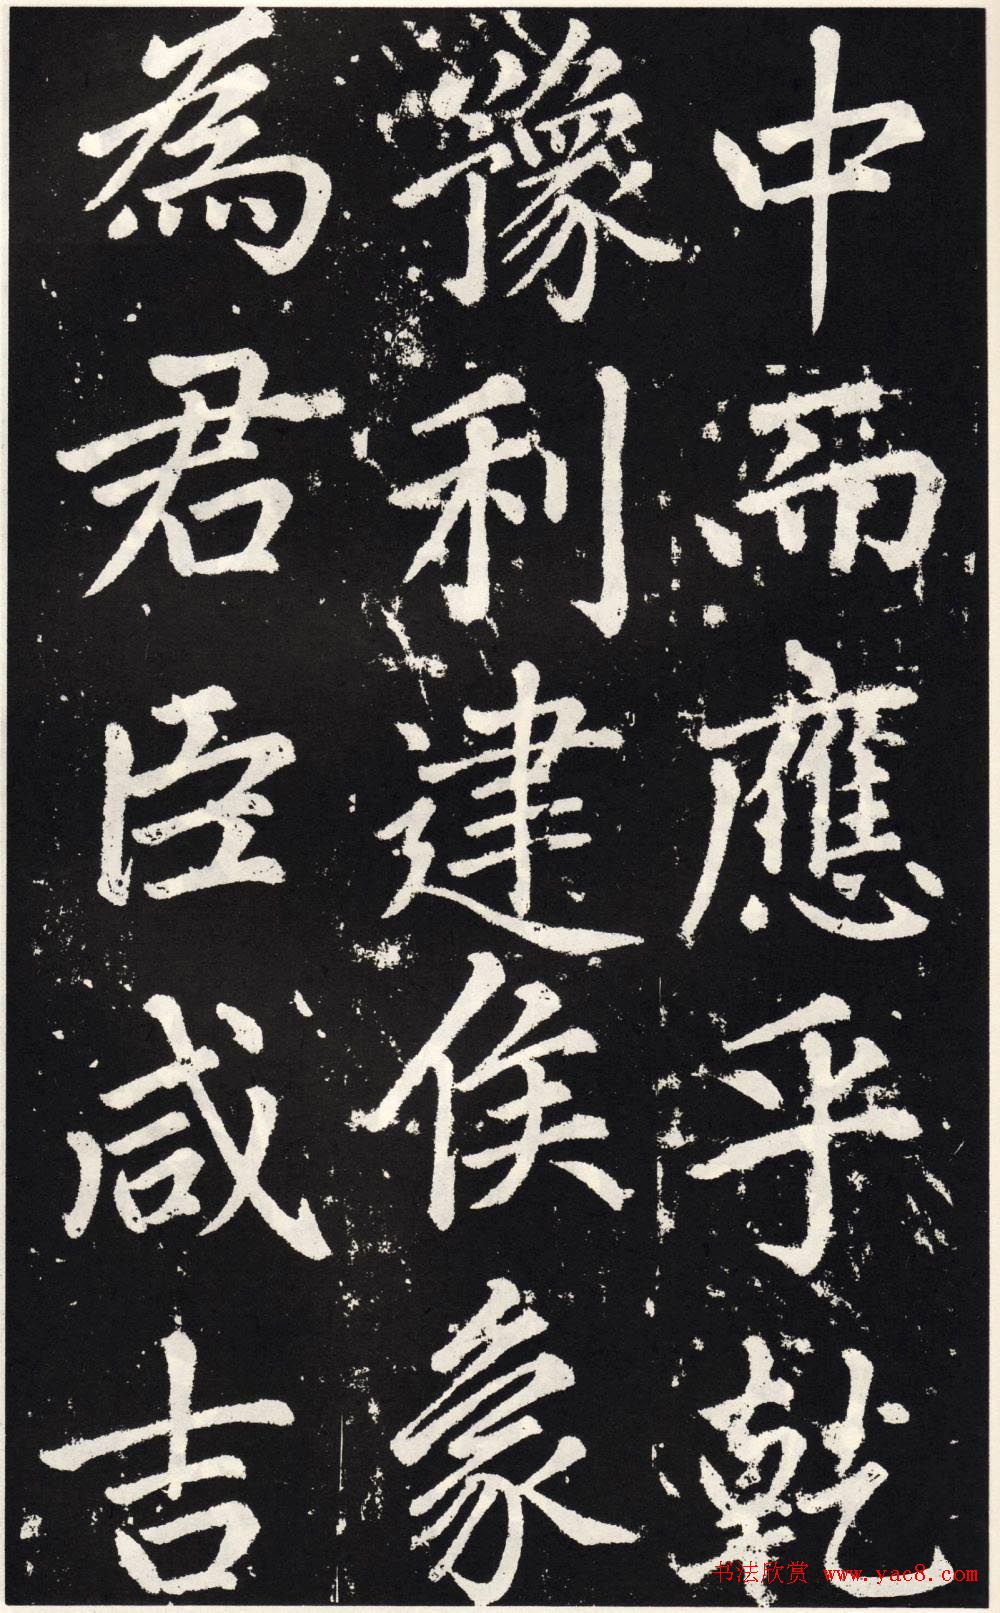 中而應乎乾
豫利建侯象
為君臣咸吉
书法欣赏 www.yac8.com